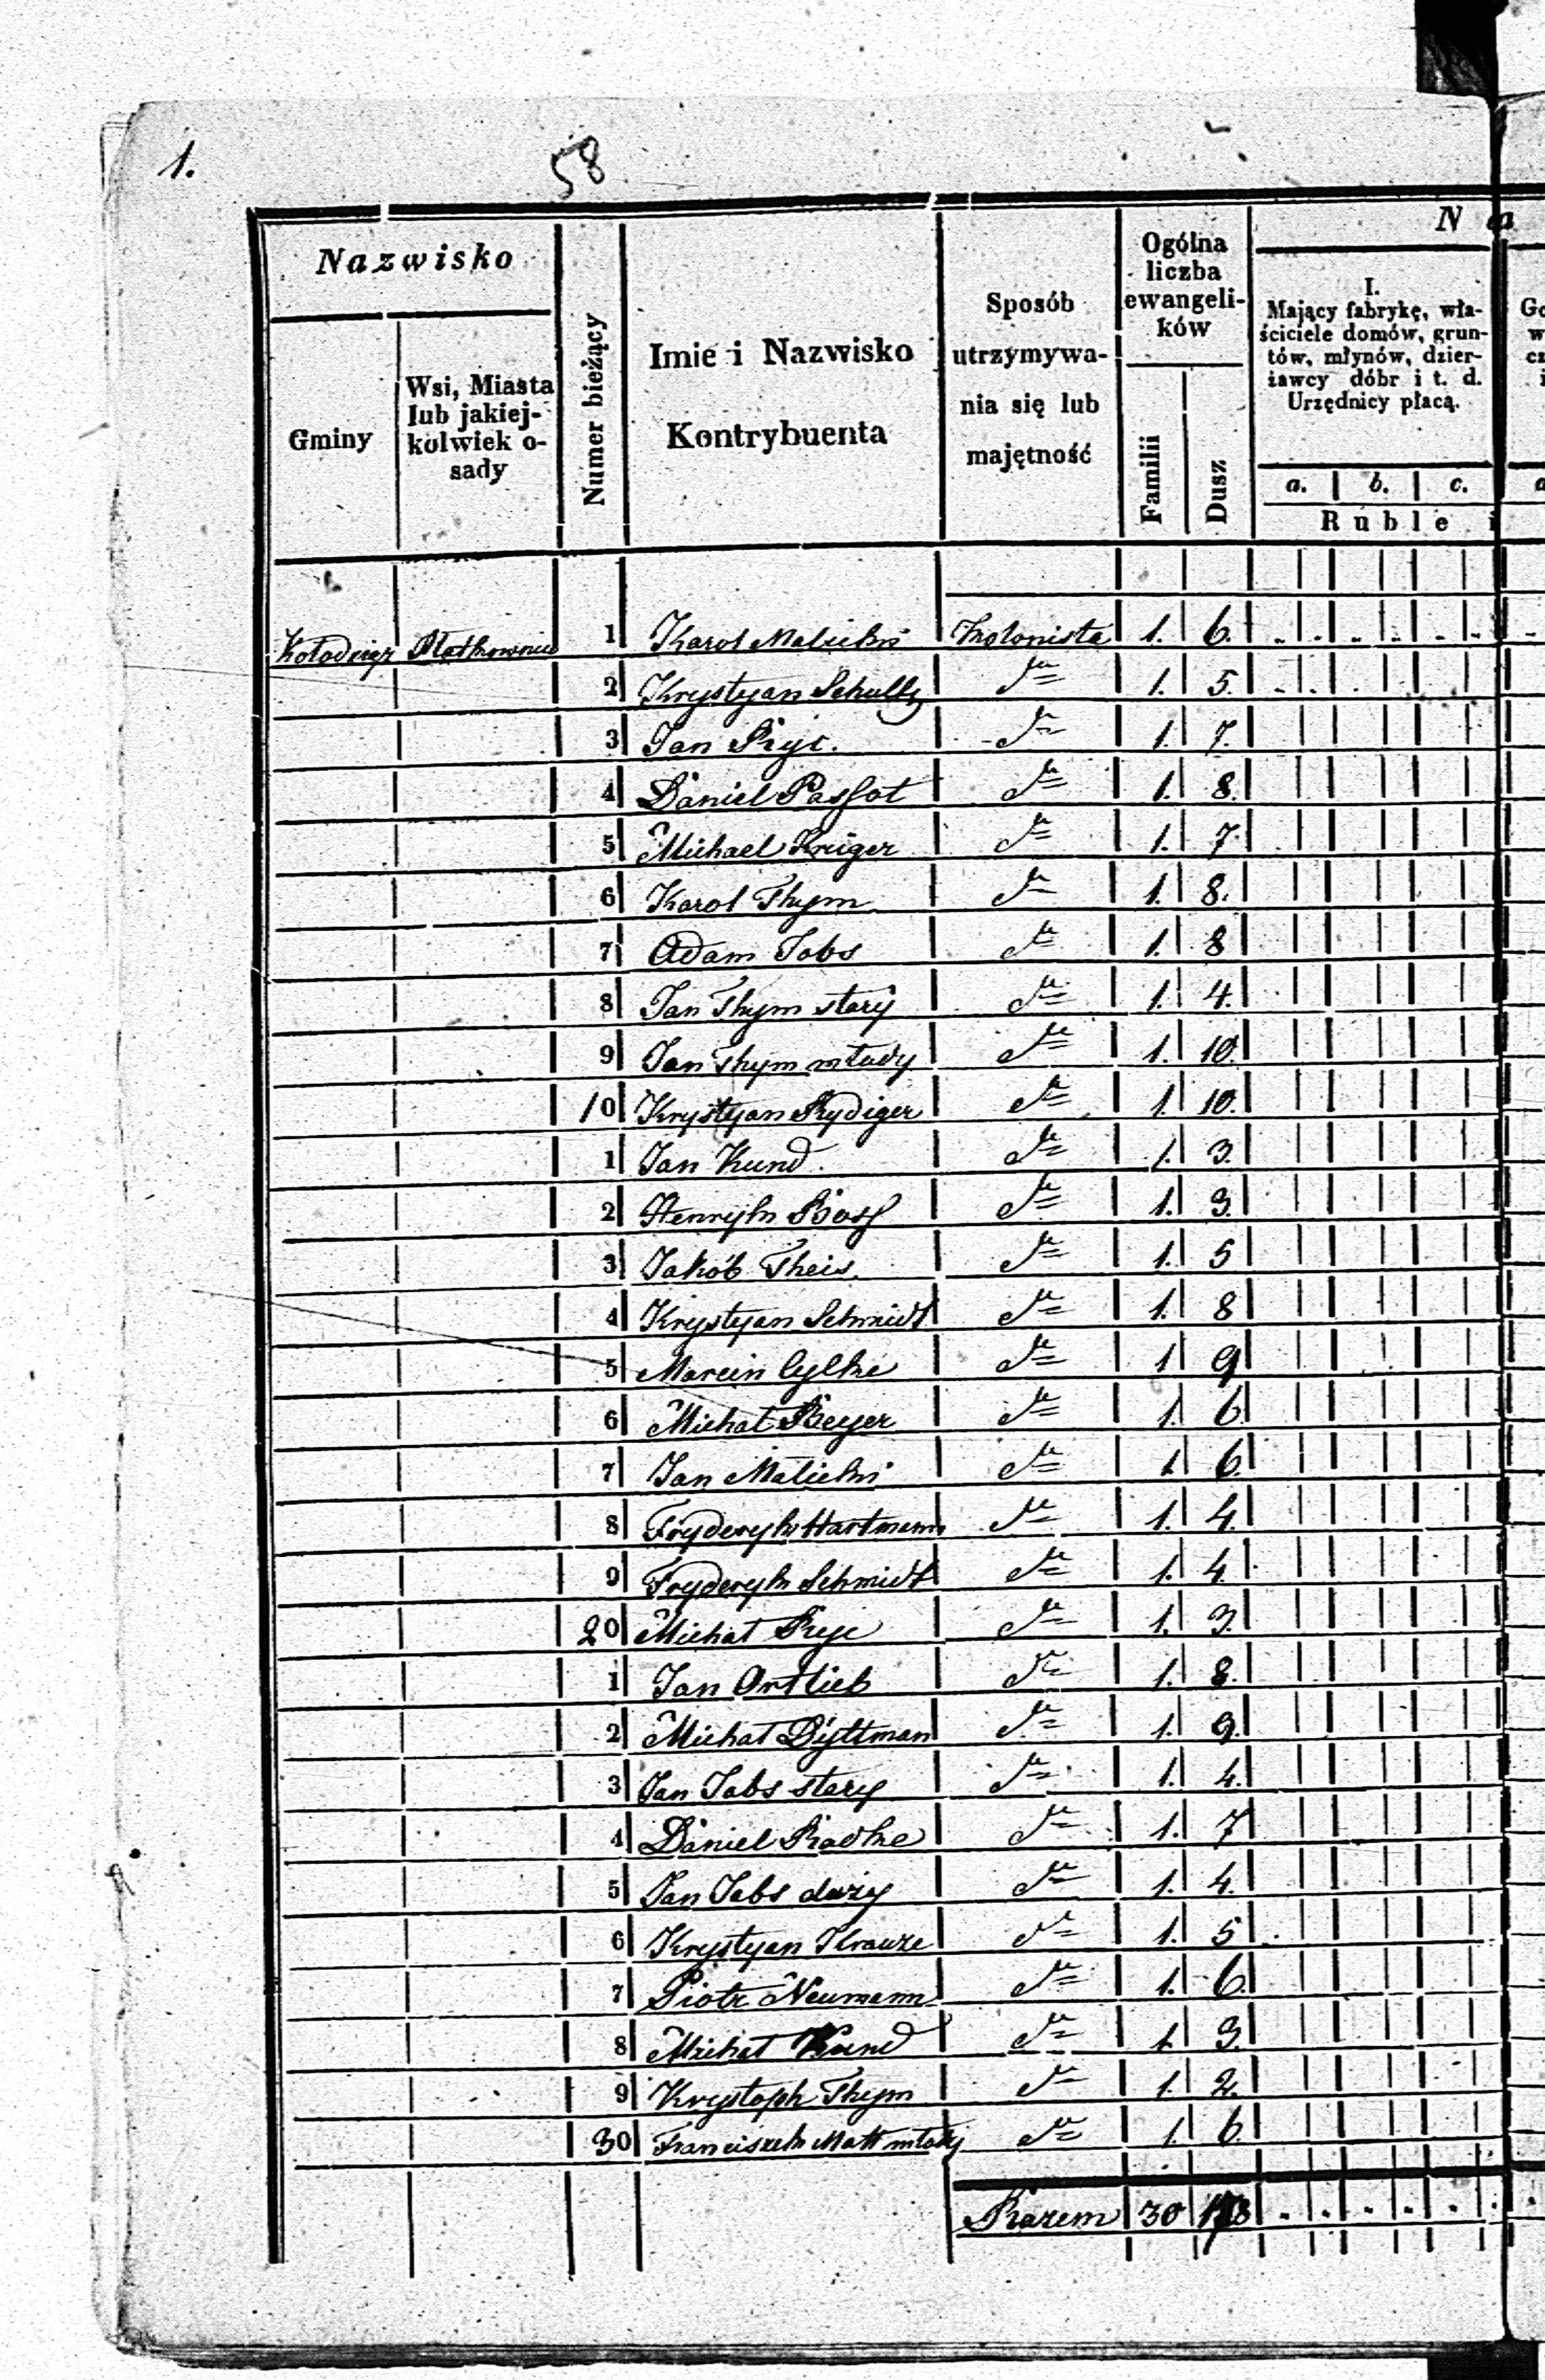 1.
58
Nazwisko
Gminy
Wsi, Miasta
lub jakiej-
kolwiek o-
sady
Numer bieżący
Imie i Nazwisko
Kontrybuenta
Sposób
utrzymywa-
nia się lub
majętność
Ogólna
liczba
ewangeli-
ków
Familii
Dusz
N a
I.
Mający fabrykę, wła-
ściciele domów, grun-
tów, młynów, dzier-
żawcy dóbr i t. d.
Urzędnicy płacą.
a. b. c.
Ruble i
Kołodziąz Płatkownica 1 Karol Malicki Kolonista 1. 6.
2 Krystyan Schultz dto 1. 5.
3 Jan Ryc. dto 1. 7.
4 Daniel Passot dto 1. 8.
5 Michael Krüger dto 1. 7.
6 Karol Thym dto 1. 8.
7 Adam Jobs dto 1. 8
8 Jan Thym stary dto 1. 4.
9 Jan Thym młody dto 1. 10.
10 Krystyan Rydiger dto 1. 10.
1 Jan Kund. dto 1. 3.
2 Henryk Boss dto 1. 3.
3 Jakób Theis. dto 1. 5
4 Krystyan Schmidt dto 1. 8
5 Marcin Cylke dto 1 9
6 Michał Beyer dto 1. 6
7 Jan Malicki dto 1 6.
8 Fryderyk Hartmann dto 1. 4.
9 Fryderyk Schmidt dto 1. 4.
20 Michał Ryc dto 1. 3.
1 Jan Ortlieb dto 1. 8.
2 Michał Dyttman dto 1. 9.
3 Jan Jabs stary dto 1. 4.
4 Daniel Radke dto 1. 7
5 Jan Jabs duży dto 1. 4.
6 Krystyan Krauze dto 1. 5
7 Piotr Neumann dto 1. 6.
8 Michał Kund dto 1 3.
9 Krystoph Thym dto 1. 2.
30 Franciszek Matt młody dto 1. 6.
Razem 30